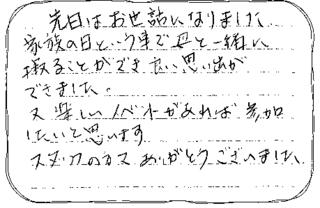 先日はお世話になりました
家族の日という事で母と一緒に
撮ることができ良い思い出が
できました。
又楽しいイベントがあれば参加
したいと思います
スタッフの方々ありがとうございました